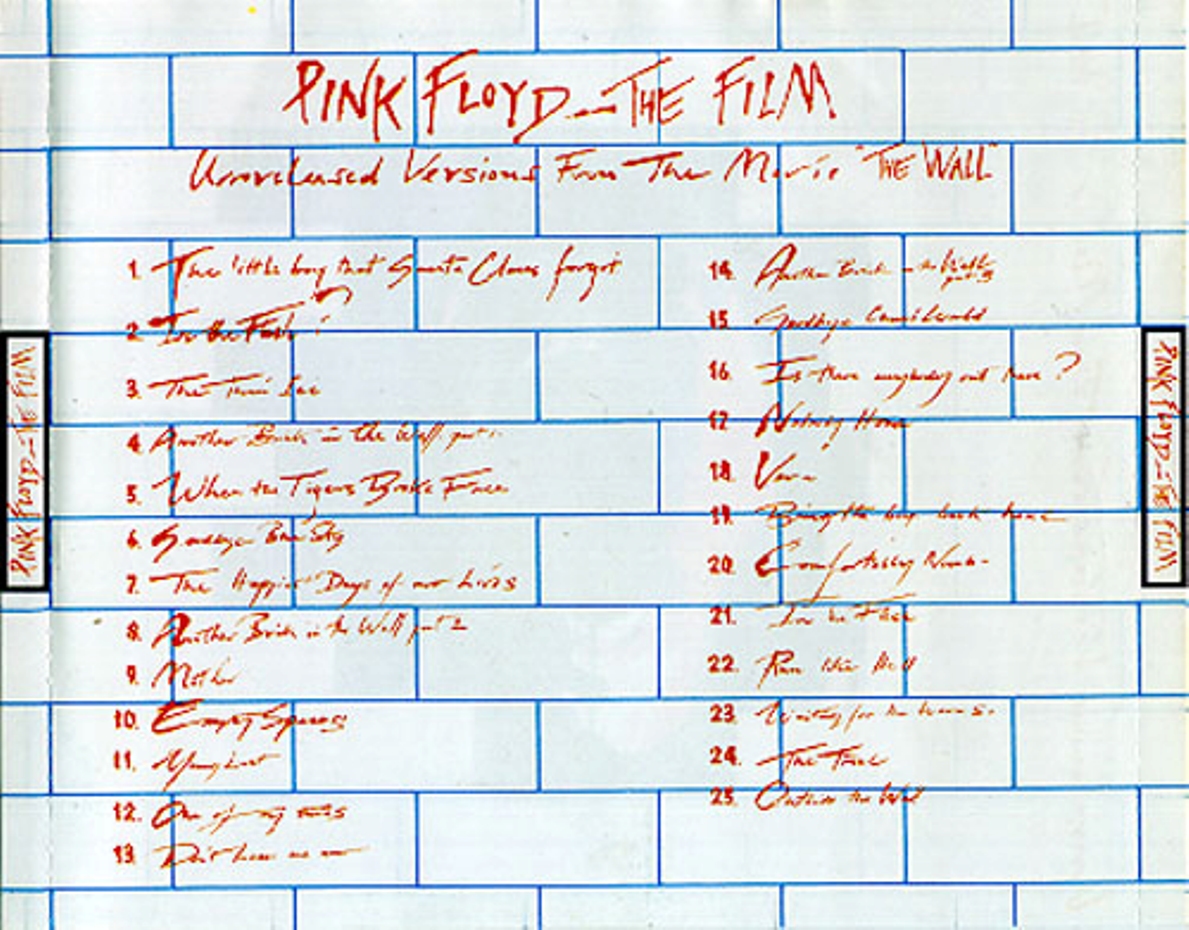 PINK FLOYD_THE FILM
Unreleased Versions From The Movie "THE WALL"
1. The little boy that Santa Claus forgot
2. In the Flesh?
3. The Thin Ice
4. Another Brick in the Wall part 1
5. When the Tigers Broke Free
6. Goodbye Blue Sky
7. The Happiest Days of our Lives
8. Another Brick in the Wall part 2
9. Mother
10. Empty Spaces
11. Young Lust
12. One of my turns
13. Don't leave me now
14. Another Brick in the Wall part 3
15. Goodbye Cruel World
16. Is there anybody out there?
17. Nobody Home
18. Vera
19. Bring the boys back home
20. Comfortably Numb
21. In the Flesh
22. Run Like Hell
23. Waiting for the Worms
24. The Trial
25. Outside the Wall
PINK FLOYD_THE FILM
PINK FLOYD_THE FILM